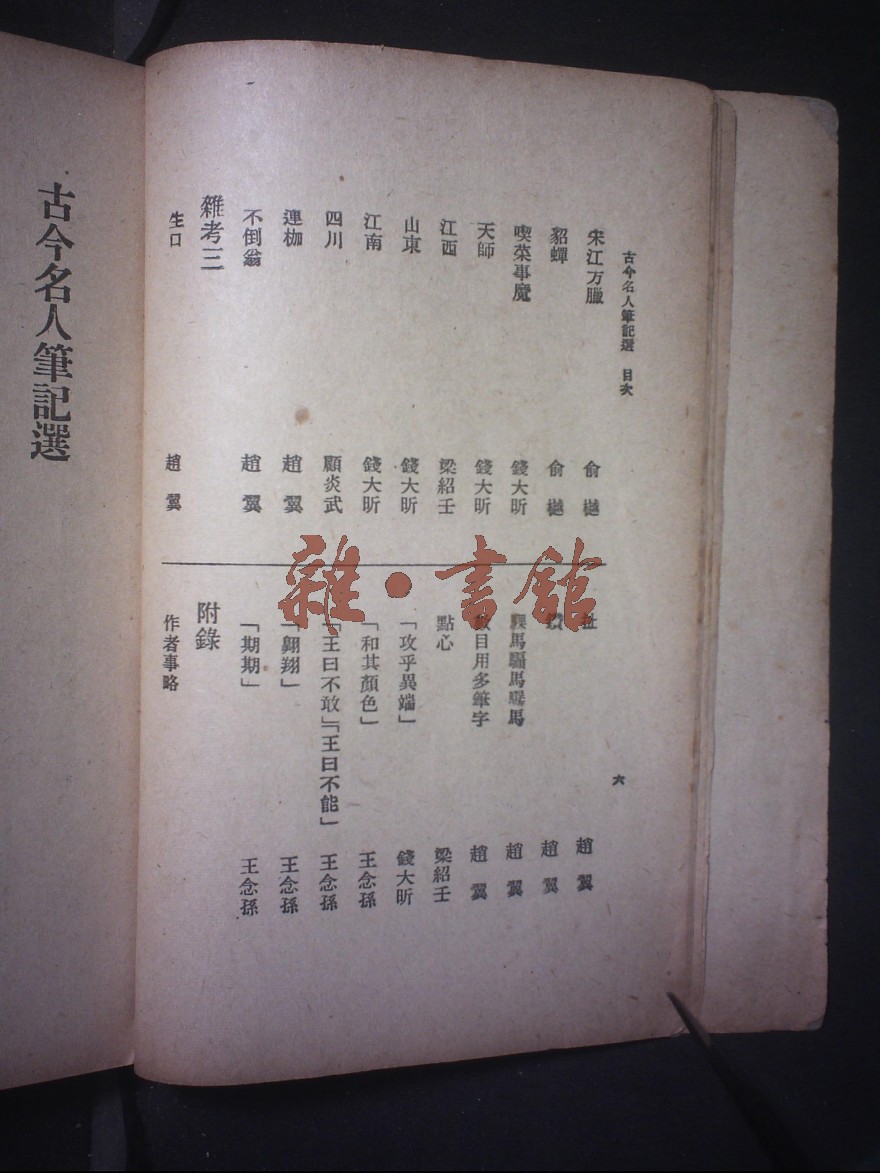 古今名人筆記選 目次
宋江方臘 俞樾
貂蟬 俞樾
喫菜事魔 錢大昕
天師 錢大昕
江西 梁紹壬
山東 錢大昕
江南 錢大昕
四川 顧炎武
連枷 趙翼
不倒翁 趙翼
雜考三
生口 趙翼
趙翼
趙翼
馬騸馬騍馬 趙翼
目用多筆字 趙翼
點心 梁紹壬
「攻乎異端」 錢大昕
「和其顏色」 王念孫
「王曰不敢」「王曰不能」 王念孫
「翱翔」 王念孫
「期期」 王念孫
附錄
作者事略
六
古今名人筆記選
雜·書館